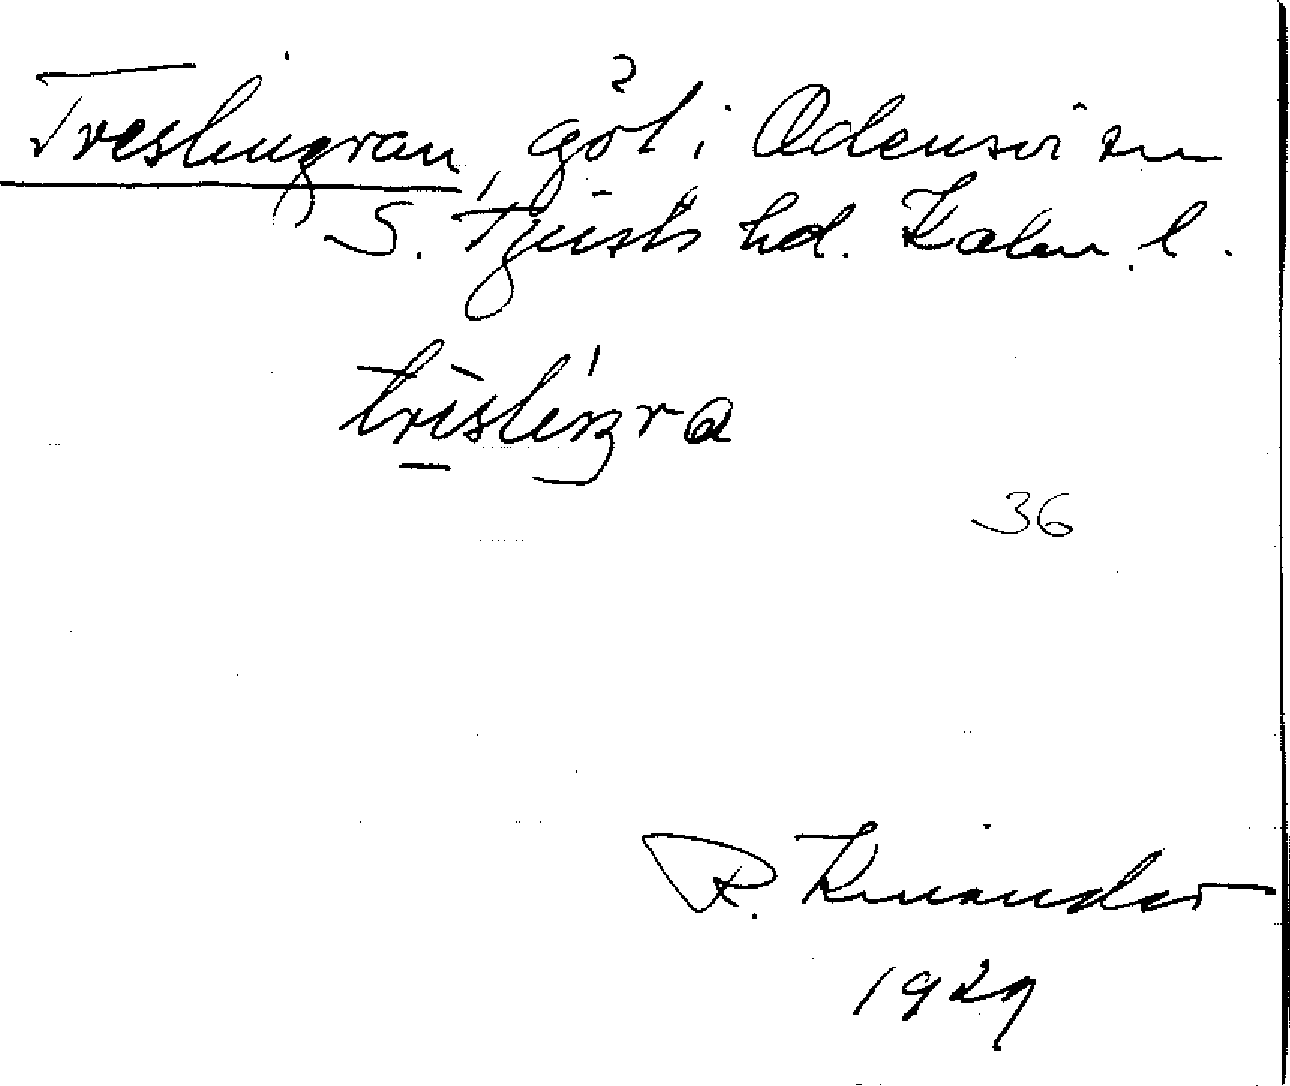 Treslingran, göl i Odensvi sn
S. Tjusts hd. Kalm. l.
trislıŋra
36
R. Kinander
1929